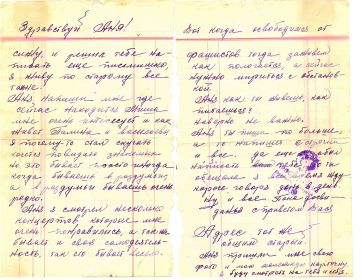 Здравствуй Аня!
сижу и решила тебе на-
писать еще письмишко,
я живу по старому все
также.
Аня напиши мне где
сейчас находится Миша
мне очень интересует и как
живет Галина и
Я почему то стал скучать
хочется повидать знакомых
но это бывает просто иногда
когда бываешь в раздумьи,
а в раздумьи бываешь очень
редко.
Аня я смотрел несколько
концертов, которые мне
очень понравились, а так же
бывает и своя самодеятель-
ность, так его бывает весело.
Вот когда освободимся от
фашистов тогда заживем
как полагается, а сейчас
нужно мириться с обстанов-
кой.
Аня как ты живешь, как
питаешься?
наверно не важно.
Аня ты пиши по больше,
а то напишет
и все. да еще
написала ты
обещала я жду
короче говоря день в день.
Ну и все. Пока досви-
данья с приветом Вася
Адрес тот же
общим старый.
Аня пришли мне свою
фото я мою карточку
я буду смотреть на тебя